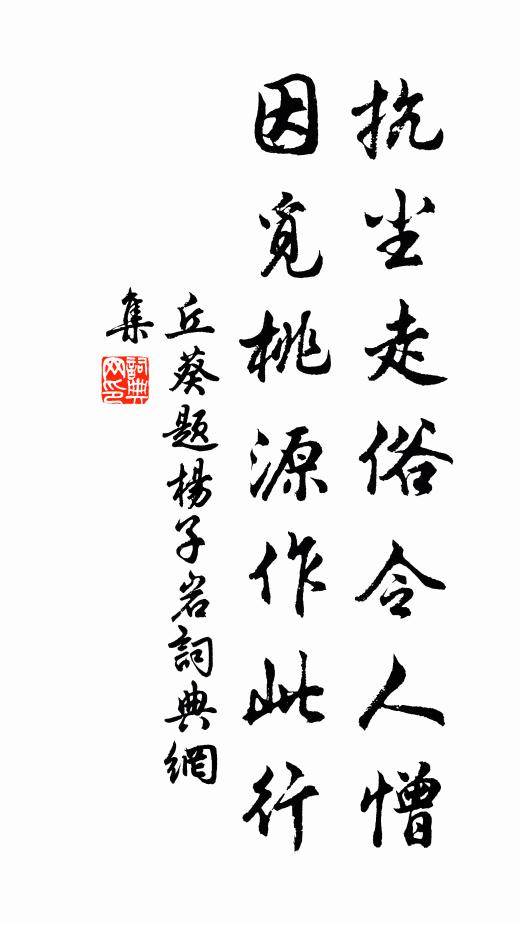 抗尘走俗令人憎
因觅桃源作此行
丘葵题杨子岩詞典網
集
詞典
网印